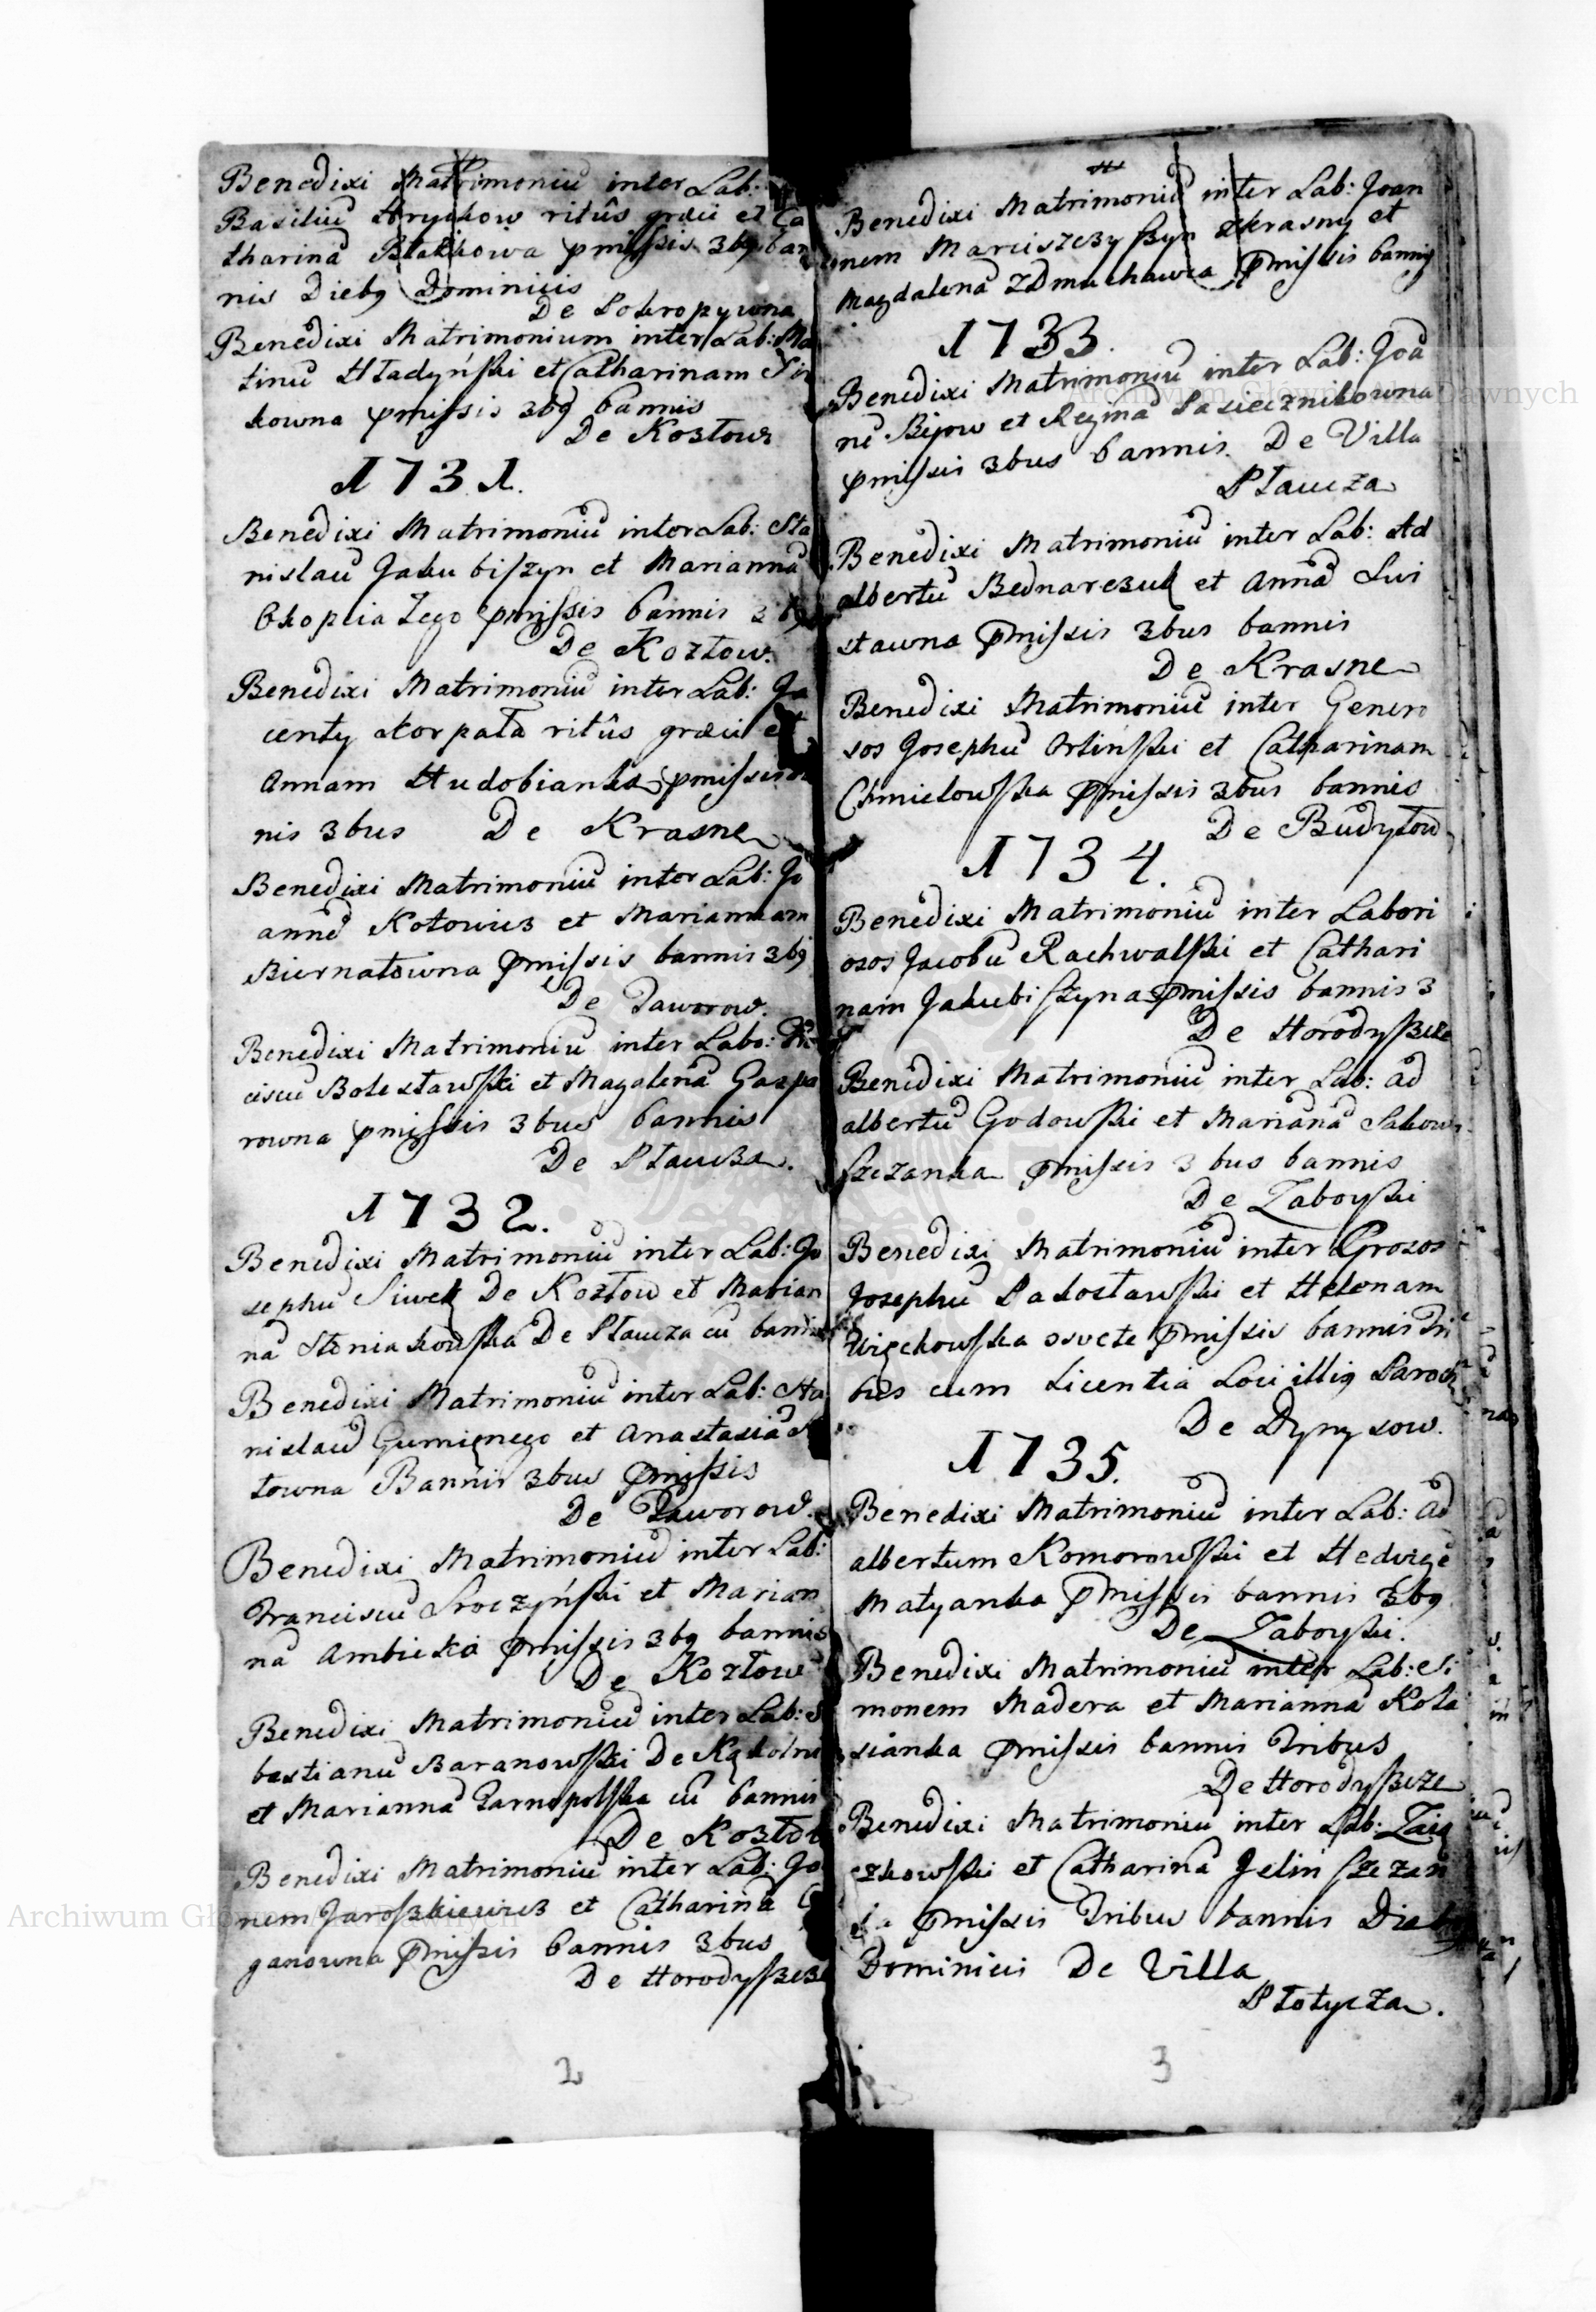 Benedixi Matrimoniũ inter Lab:
Basiliũ Hryckow ritûs græci et Ca
tharinã pmissis 3bg ban
nis Diebg Dominicis
De Pokropywna
Benedixi Matrimonium inter Lab: Ma
tinũ Hładyński et Catharinam
kowna pmissis 3bg bannis
De Kozłow
1731.
Benedixi Matrimoniũ inter Lab: Sta
nislaũ Jakubiszyn et Mariannã
pmissis bannis 3bg
De Kozłow.
Benedixi Matrimoniũ inter Lab: Ja
centy Korpatã ritûs græci et
Annam Hudobianka pmissis
nis 3bus De Krasne
Benedixi Matrimoniũ inter Lab: Jo
annẽ Kotowicz et Mariannam
Biernatowna pmissis bannis 3bg
De Jaworow.
Benedixi Matrimoniũ inter Labo:
ciscũ Bolestawski et Magalenã Gaspa
rowna pmissis 3bus bannis
De Płaucza.
1732.
Benedixi Matrimoniũ inter Lab: Jo
sephũ Siwek De Kozłow et Marian
nã De Płaucza cũ bannis
Benedixi Matrimoniũ inter Lab: Sta
nislaũ Gumięnego et Anastasiã
towna Bannis 3bus pmissis
De Jaworow.
Benedixi Matrimoniũ inter Lab:
Franciscũ Sroczyński et Marian
nã Ambicka pmissis 3bg bannis
De Kozłow
Benedixi Matrimoniũ inter Lab: S
bastianũ Baranowski De
et Mariannã Tarnopolska cũ bannis
De Kozłow
Benedixi Matrimoniũ inter Lab: Jo
nem Jaroszkiewicz et Catharinã
ganowna pmissis bannis 3bus
De Horodyszcze
2
Benedixi Matrimoniũ inter Lab: Joan
nem Marciszczyszyn zkrasny et
Magdalenã Zdmuchawca pmissis bannis
1733.
Benedixi Matrimoniũ inter Lab: Joã
nẽ Bijow et Reginã Pasiecznikowna
pmissis 3bus bannis. De Villa
Płaucza
Benedixi Matrimoniũ inter Lab: Ad
albertũ Bednarczuk et Annã Lui
stawna pmissis 3bus bannis
De Krasne
Benedixi Matrimoniũ inter Genero
sos Josephũ Orlinski et Catharinam
Chmielowska pmissis 3bus bannis
De Budyłow
1734.
Benedixi Matrimoniũ inter Labori
osos Jacobũ Rachwalski et Cathari
nam Jakubiszyna pmissis bannis 3
De Horodyszcze
Benedixi Matrimoniũ inter Lab: Ad
albertũ Godowski et Marianã Sakow
szczanka pmissis 3bus bannis
De Zaboyki
Benedixi Matrimoniũ inter Grosos
Josephũ Padostawski et Helenam
Więckowska pmissis bannis Tri
bus cum Licentia Loci illig Paroch
De Dynysow.
1735.
Benedixi Matrimoniũ inter Lab: Ad
albertum Komorowski et Hedvigẽ
Matyanka pmissis bannis 3bg
De Zaboyki.
Benedixi Matrimoniũ inter Lab: Si
monem Madera et Mariannã Kola
sianka pmissis bannis Tribus
De Horodyszcze
Benedixi Matrimoniũ inter Lab: Zaią
czkowski et Catharinã Jelinszczan
ka pmissis Tribus bannis Diebg
Dominicis De Villa
Płotycza.
3
Archiwum Główne Akt Dawnych
Archiwum Główne Akt Dawnych